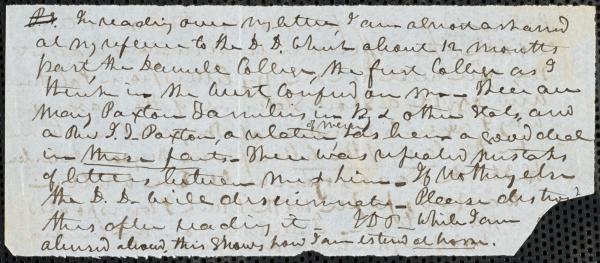 P.S. In reading over my letter, I am almost ashamed
at my reference to the D. D. which about 12 months
past the Danville College, the first College as I
think in the West confered on me — There are
Many Paxton Families in Ky & other States, and
a Rev J. D. Paxton, a relation of mine, has been a good deal
in these parts — There was repeated mistakes
of letters between me & him — If Nothing else
the D. D. will discriminate — Please destroy
this after reading it — J D P — While I am
abused abroad, this Shows how I am esteemed at home.